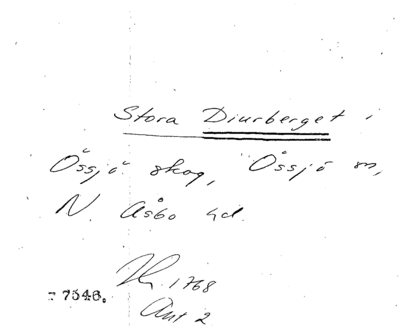 Stora Diurberget i
Össjö skog, Össjö sn,
N. Åsbo hd.
1768
7546.
Akt 2